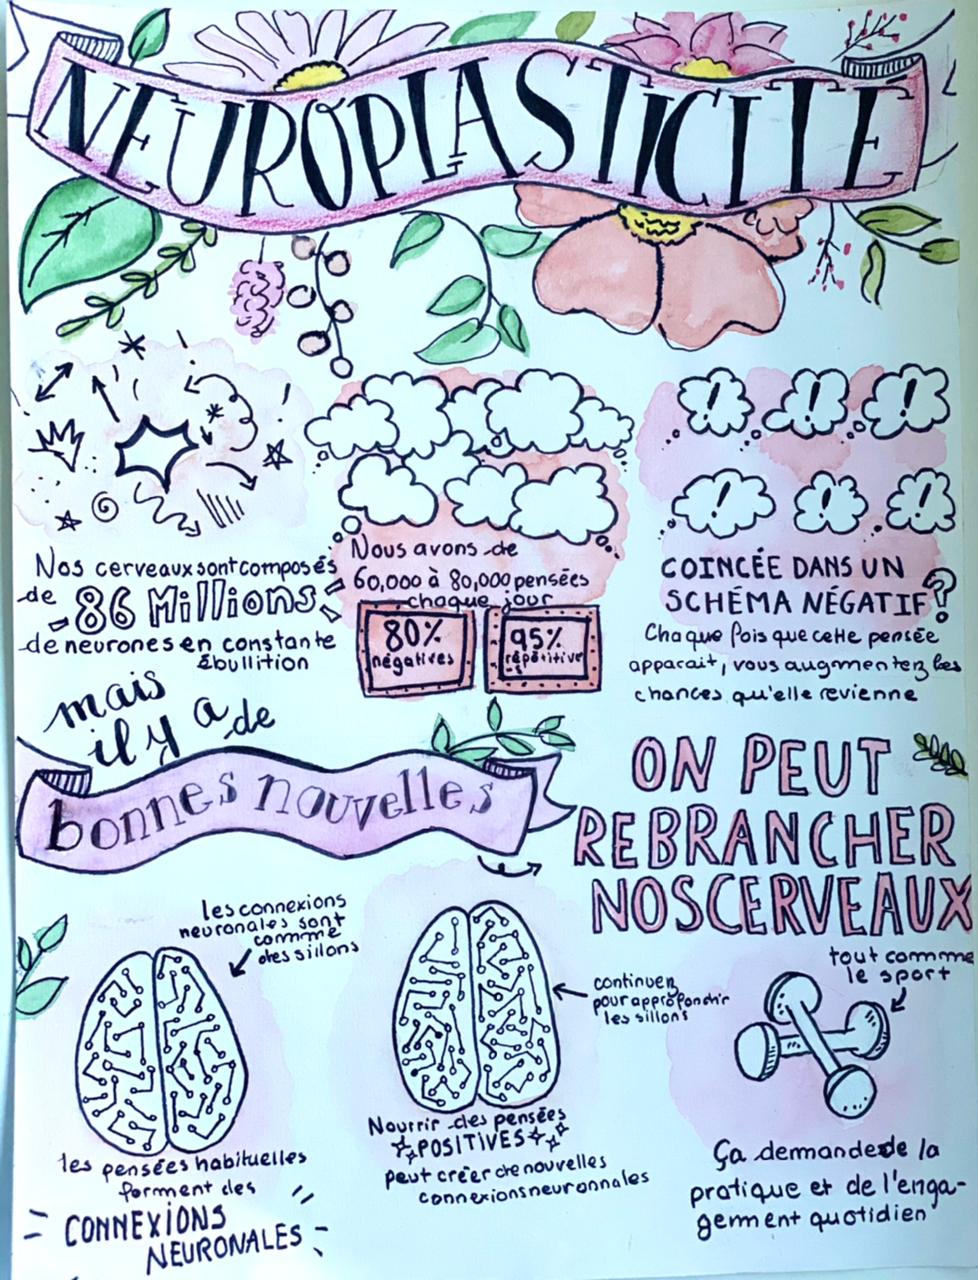 NEUROPLASTICITÉ
Nos cerveaux sont composés
de 86 Millions
de neurones en constante
ébullition
Nous avons de
60,000 à 80,000 pensées
chaque jour
80%
négatives
95%
répétitive
COINCÉE DANS UN
SCHÉMA NÉGATIF?
Chaque fois que cette pensée
apparait, vous augmentez les
chances qu'elle revienne
mais
il y a de
bonnes nouvelles
ON PEUT
REBRANCHER
NOS CERVEAUX
les connexions
neuronales sont
comme
des sillons
les pensées habituelles
forment des
CONNEXIONS
NEURONALES
continuez
pour approfondir
les sillons
Nourrir des pensées
POSITIVES
peut créer de nouvelles
connexions neuronnales
tout comme
le sport
Ça demande de la
pratique et de l'enga-
gement quotidien